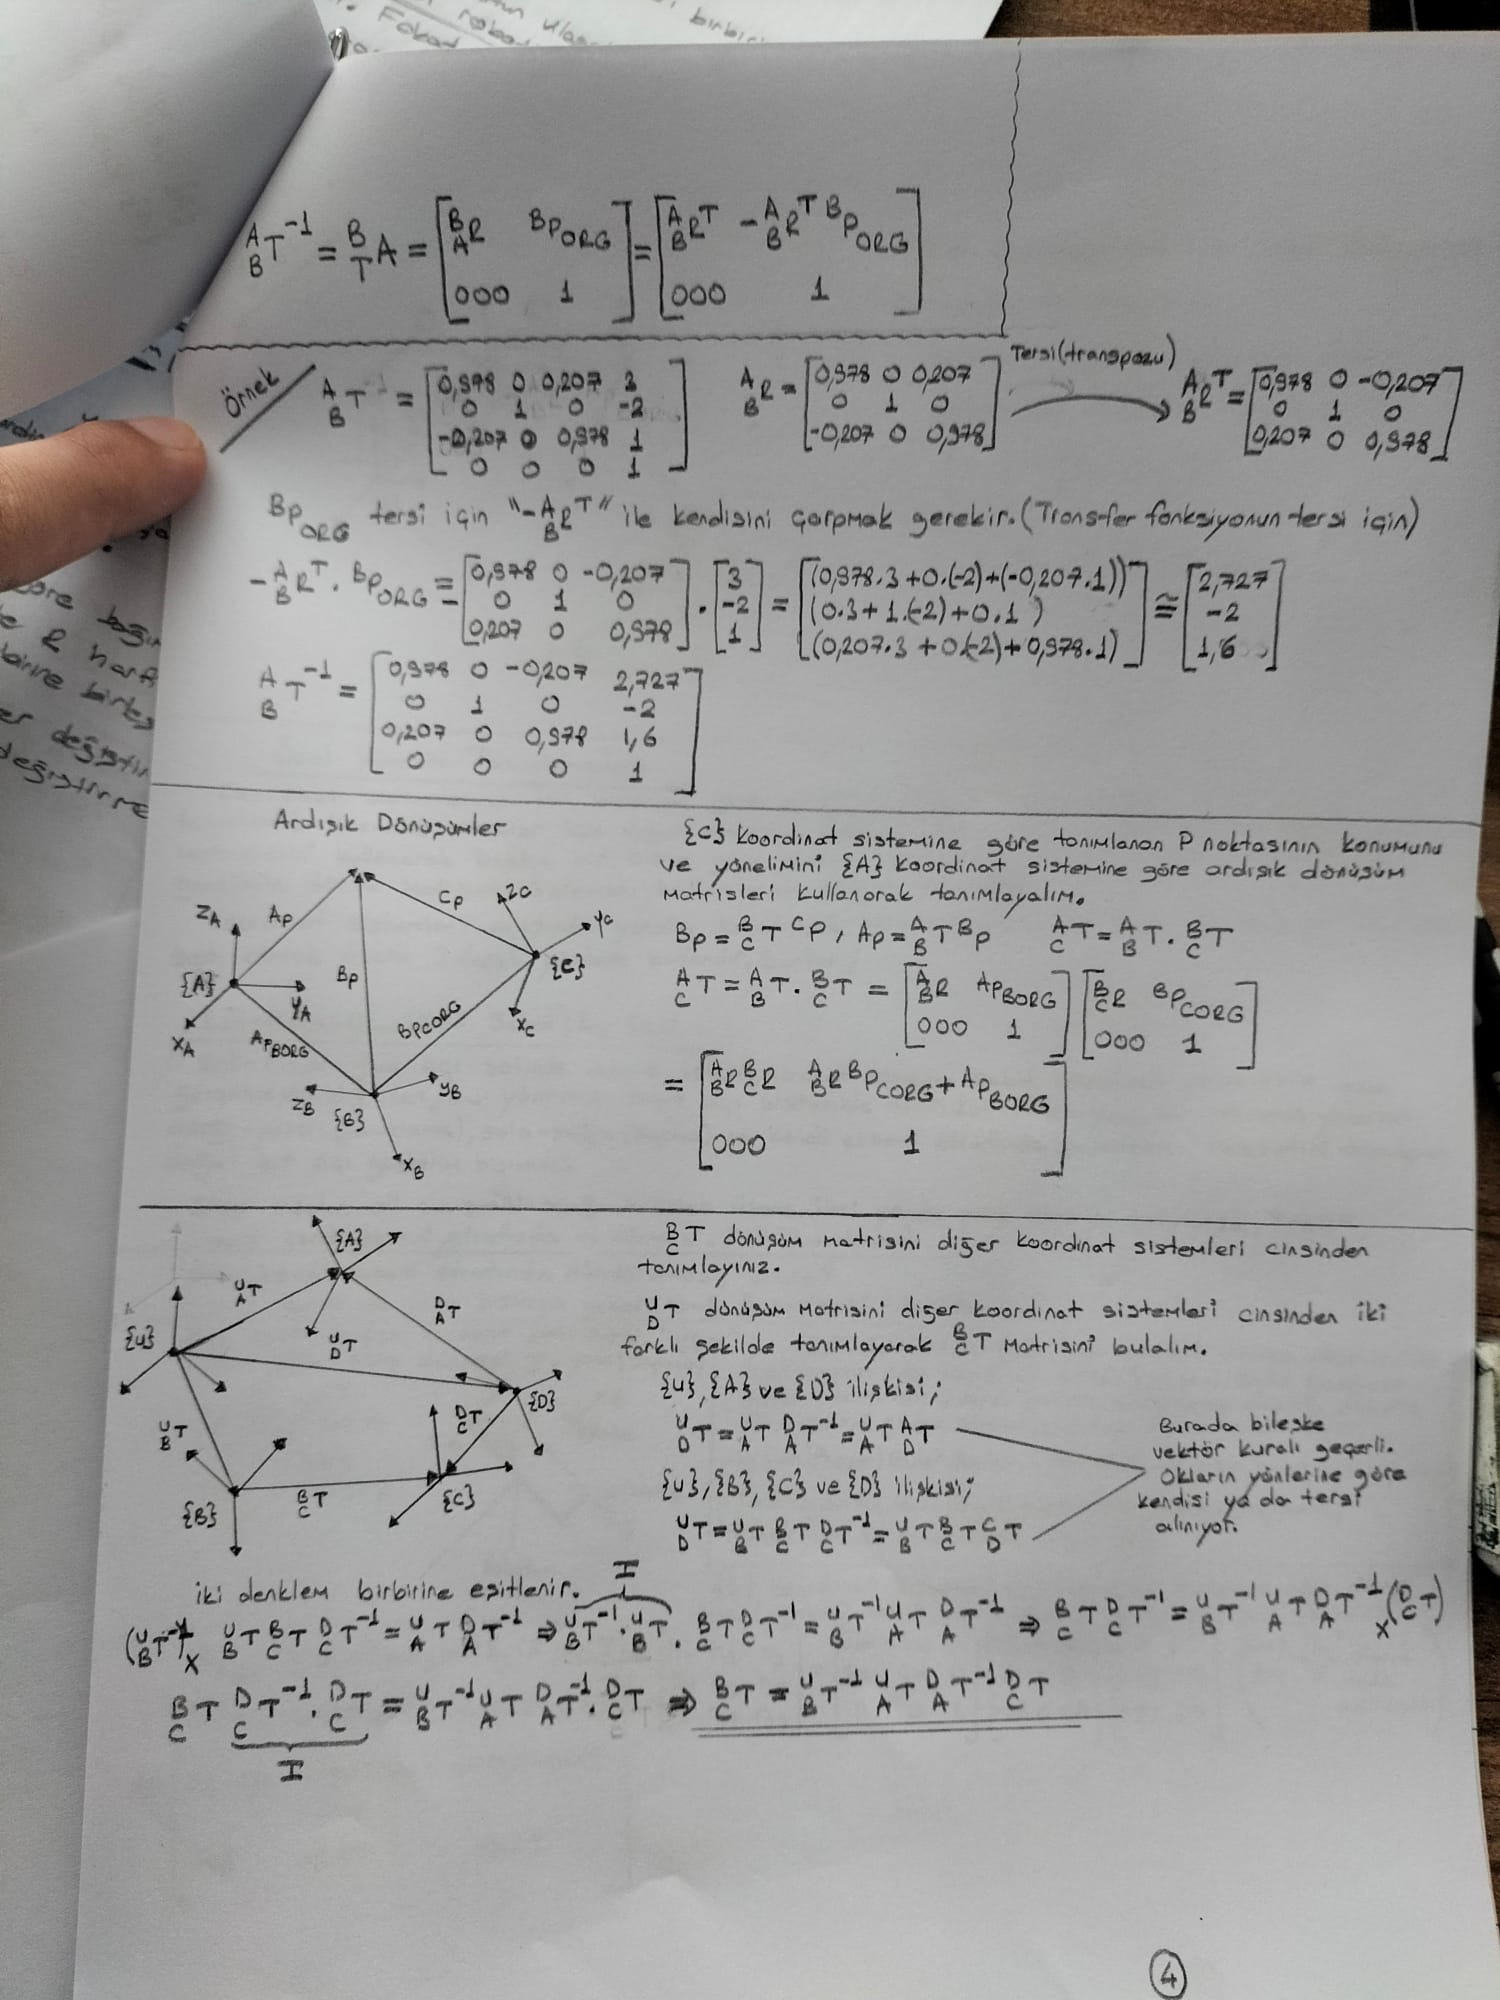 birbiri
Fakat
A B T⁻¹ = B T A = [ B A R  B P ORG ; 000  1 ] = [ A B Rᵀ  -A B Rᵀ B P ORG ; 000  1 ]
Örnek
A B T⁻¹ = [ 0,978 0 0,207 3 ; 0 1 0 -2 ; -0,207 0 0,978 1 ; 0 0 0 1 ]
A B R = [ 0,978 0 0,207 ; 0 1 0 ; -0,207 0 0,978 ]
Tersi(transpozu)
A B Rᵀ = [ 0,978 0 -0,207 ; 0 1 0 ; 0,207 0 0,978 ]
B P ORG tersi için "-A B Rᵀ" ile kendisini çarpmak gerekir. (Transfer fonksiyonun tersi için)
-A B Rᵀ . B P ORG = [ 0,978 0 -0,207 ; 0 1 0 ; 0,207 0 0,978 ] . [ 3 ; -2 ; 1 ] = [ (0,978.3+0.(-2)+(-0,207.1)) ; (0.3+1.(-2)+0.1) ; (0,207.3+0.(-2)+0,978.1) ] ≅ [ 2,727 ; -2 ; 1,6 ]
A B T⁻¹ = [ 0,978 0 -0,207 2,727 ; 0 1 0 -2 ; 0,207 0 0,978 1,6 ; 0 0 0 1 ]
Ardışık Dönüşümler
ZA
AP
CP
ZC
YC
{A}
BP
{C}
YA
XA
APBORG
BPCORG
XC
ZB
{B}
YB
XB
{C} koordinat sistemine göre tanımlanan P noktasının konumunu
ve yönelimini {A} koordinat sistemine göre ardışık dönüşüm
matrisleri kullanarak tanımlayalım.
BP = B C T CP, AP = A B T BP  A C T = A B T . B C T
A C T = A B T . B C T = [ A B R  APBORG ; 000  1 ] [ B C R  BPCORG ; 000  1 ]
= [ A B R B C R  A B R BPCORG + APBORG ; 000  1 ]
{A}
U A T
D A T
{U}
U D T
{D}
U B T
D C T
{B}
B C T
{C}
B C T dönüşüm matrisini diğer koordinat sistemleri cinsinden
tanımlayınız.
U D T dönüşüm matrisini diğer koordinat sistemleri cinsinden iki
farklı şekilde tanımlayarak B C T matrisini bulalım.
{U}, {A} ve {D} ilişkisi;
U D T = U A T D A T⁻¹ = U A T A D T
{U}, {B}, {C} ve {D} ilişkisi;
U D T = U B T B C T D C T⁻¹ = U B T B C T C D T
Burada bileşke
vektör kuralı geçerli.
Okların yönlerine göre
kendisi ya da tersi
alınıyor.
iki denklem birbirine eşitlenir.
I
(U B T⁻¹) x U B T B C T D C T⁻¹ = U A T D A T⁻¹ ⇒ U B T⁻¹ . U B T . B C T D C T⁻¹ = U B T⁻¹ U A T D A T⁻¹ ⇒ B C T D C T⁻¹ = U B T⁻¹ U A T D A T⁻¹ x (D C T)
B C T D C T⁻¹ . D C T = U B T⁻¹ U A T D A T⁻¹ . D C T ⇒ B C T = U B T⁻¹ U A T D A T⁻¹ D C T
I
4